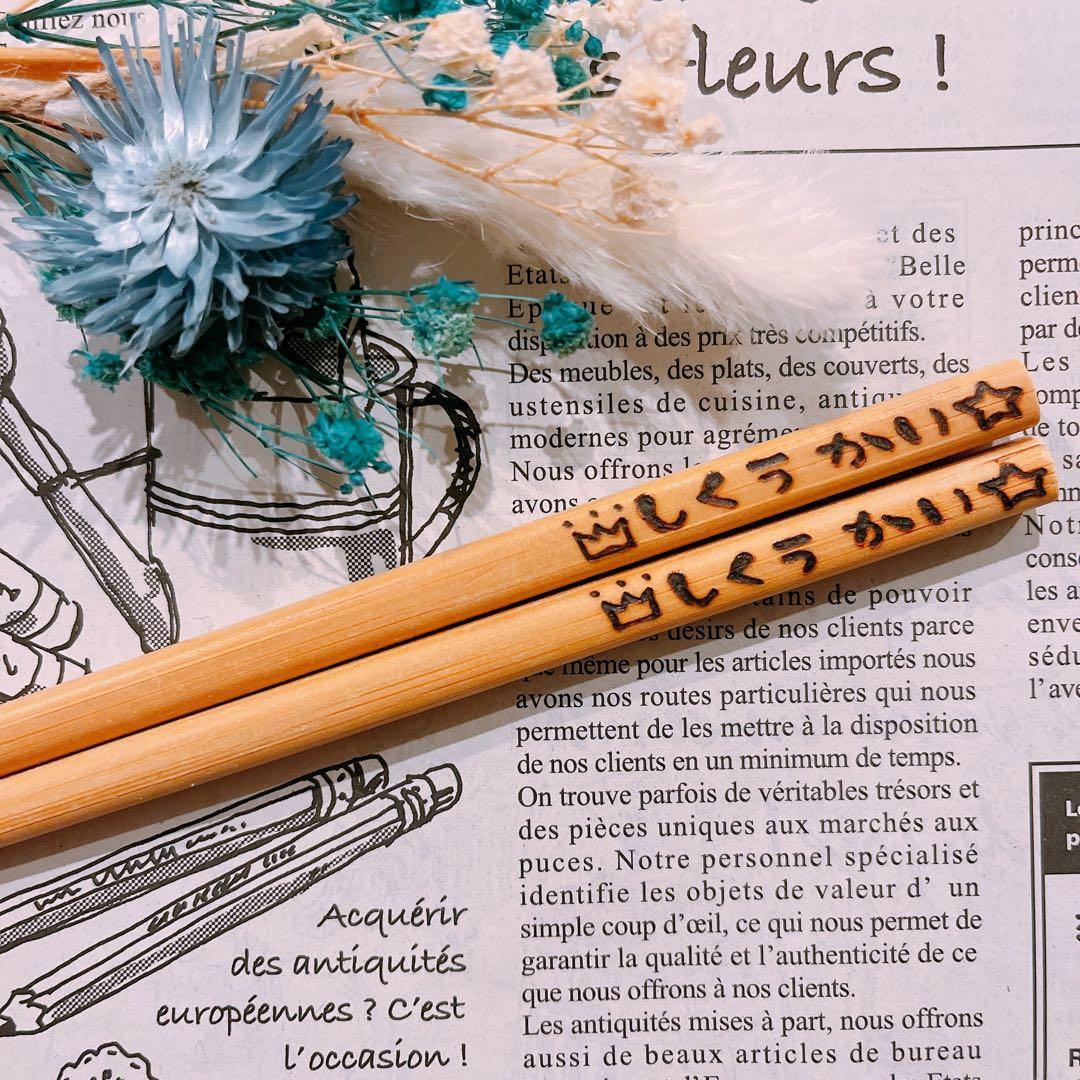 ﬁez nous
s
leurs !
Etats
et des
"Belle
à votre
disposition à des prix très compétitifs.
Des meubles, des plats, des couverts, des
ustensiles de cuisine,
modernes pour
Nous offrons
avons
princ
perm
clien
par d
Les
しくう かい
しくう かい
de pouvoir
désirs de nos clients parce
que même pour les articles importés nous
avons nos routes particulières qui nous
permettent de les mettre à la disposition
de nos clients en un minimum de temps.
On trouve parfois de véritables trésors et
des pièces uniques aux marchés aux
puces. Notre personnel spécialisé
identifie les objets de valeur d' un
simple coup d'œil, ce qui nous permet de
garantir la qualité et l'authenticité de ce
que nous offrons à nos clients.
Les antiquités mises à part, nous offrons
aussi de beaux articles de bureau
Notr
cons
les a
enve
sédu
l'ave
Acquérir
des antiquités
européennes ? C'est
l'occasion !